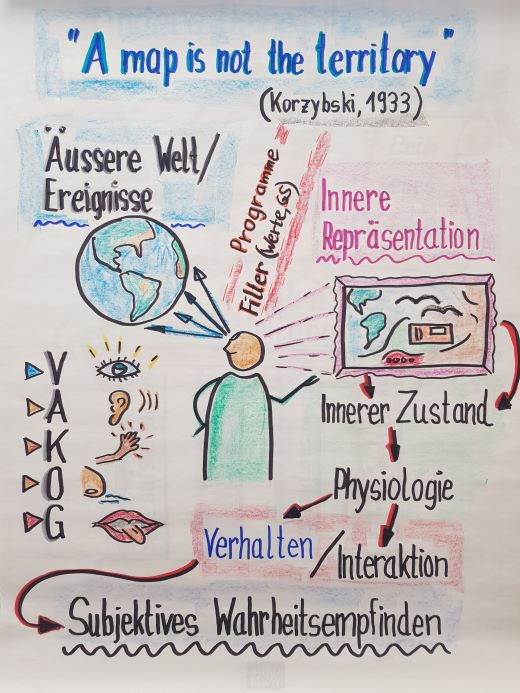 "A map is not the territory"
(Korzybski, 1933)
Äussere Welt/
Ereignisse
Programme
Filler (Werte, GS)
Innere
Repräsentation
V
A
K
O
G
Innerer Zustand
Physiologie
Verhalten / Interaktion
Subjektives Wahrheitsempfinden